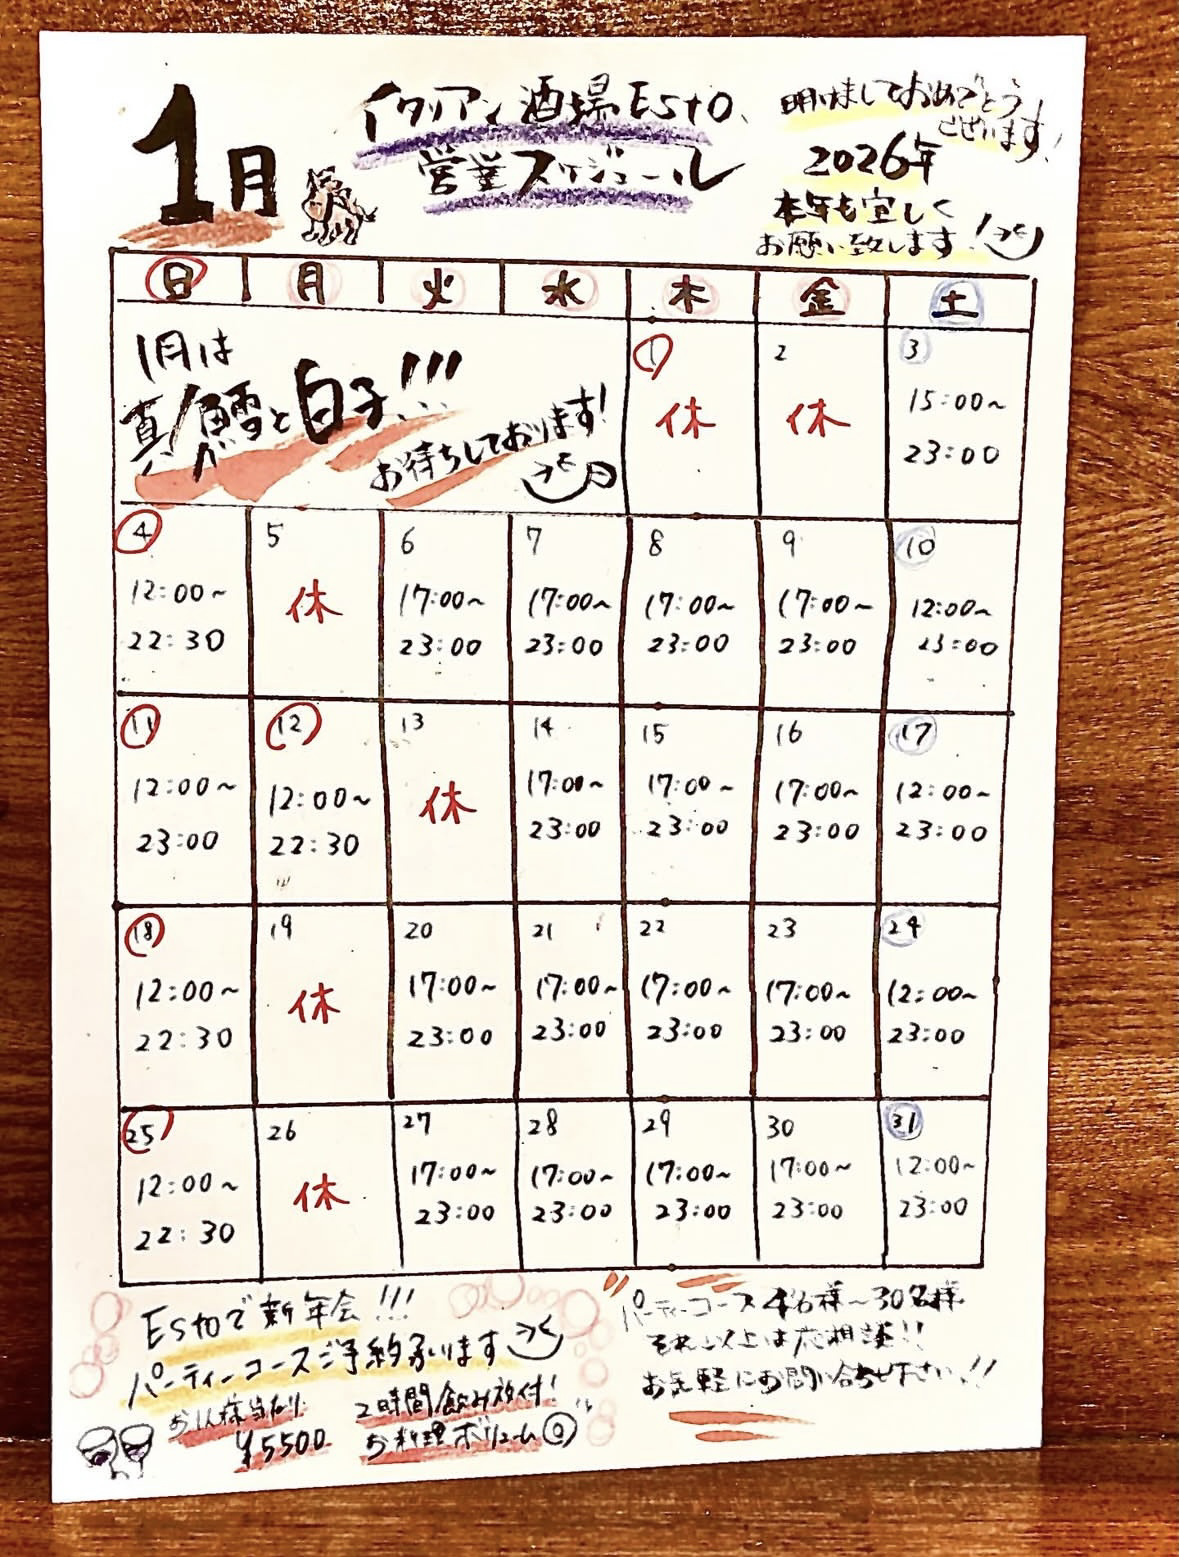 1月
イタリアン酒場Esto
営業スケジュール
明けましておめでとう
ございます!
2026年
本年も宜しく
お願い致します!
日 月 火 水 木 金 土
1月は
真鱈と白子!!!
お待ちしております!
1 2 3
休 休 15:00~
23:00
4 5 6 7 8 9 10
12:00~ 休 17:00~ 17:00~ 17:00~ 17:00~ 12:00~
22:30 23:00 23:00 23:00 23:00 23:00
11 12 13 14 15 16 17
12:00~ 12:00~ 休 17:00~ 17:00~ 17:00~ 12:00~
23:00 22:30 23:00 23:00 23:00 23:00
18 19 20 21 22 23 24
12:00~ 休 17:00~ 17:00~ 17:00~ 17:00~ 12:00~
22:30 23:00 23:00 23:00 23:00 23:00
25 26 27 28 29 30 31
12:00~ 休 17:00~ 17:00~ 17:00~ 17:00~ 12:00~
22:30 23:00 23:00 23:00 23:00 23:00
Estoで新年会!!!
パーティーコースご予約承ります
お1人様当たり
¥5500
2時間飲み放付!
お料理ボリューム◎
パーティーコース4名様~30名様
それ以上は応相談!!
お気軽にお問い合わせ下さい!!